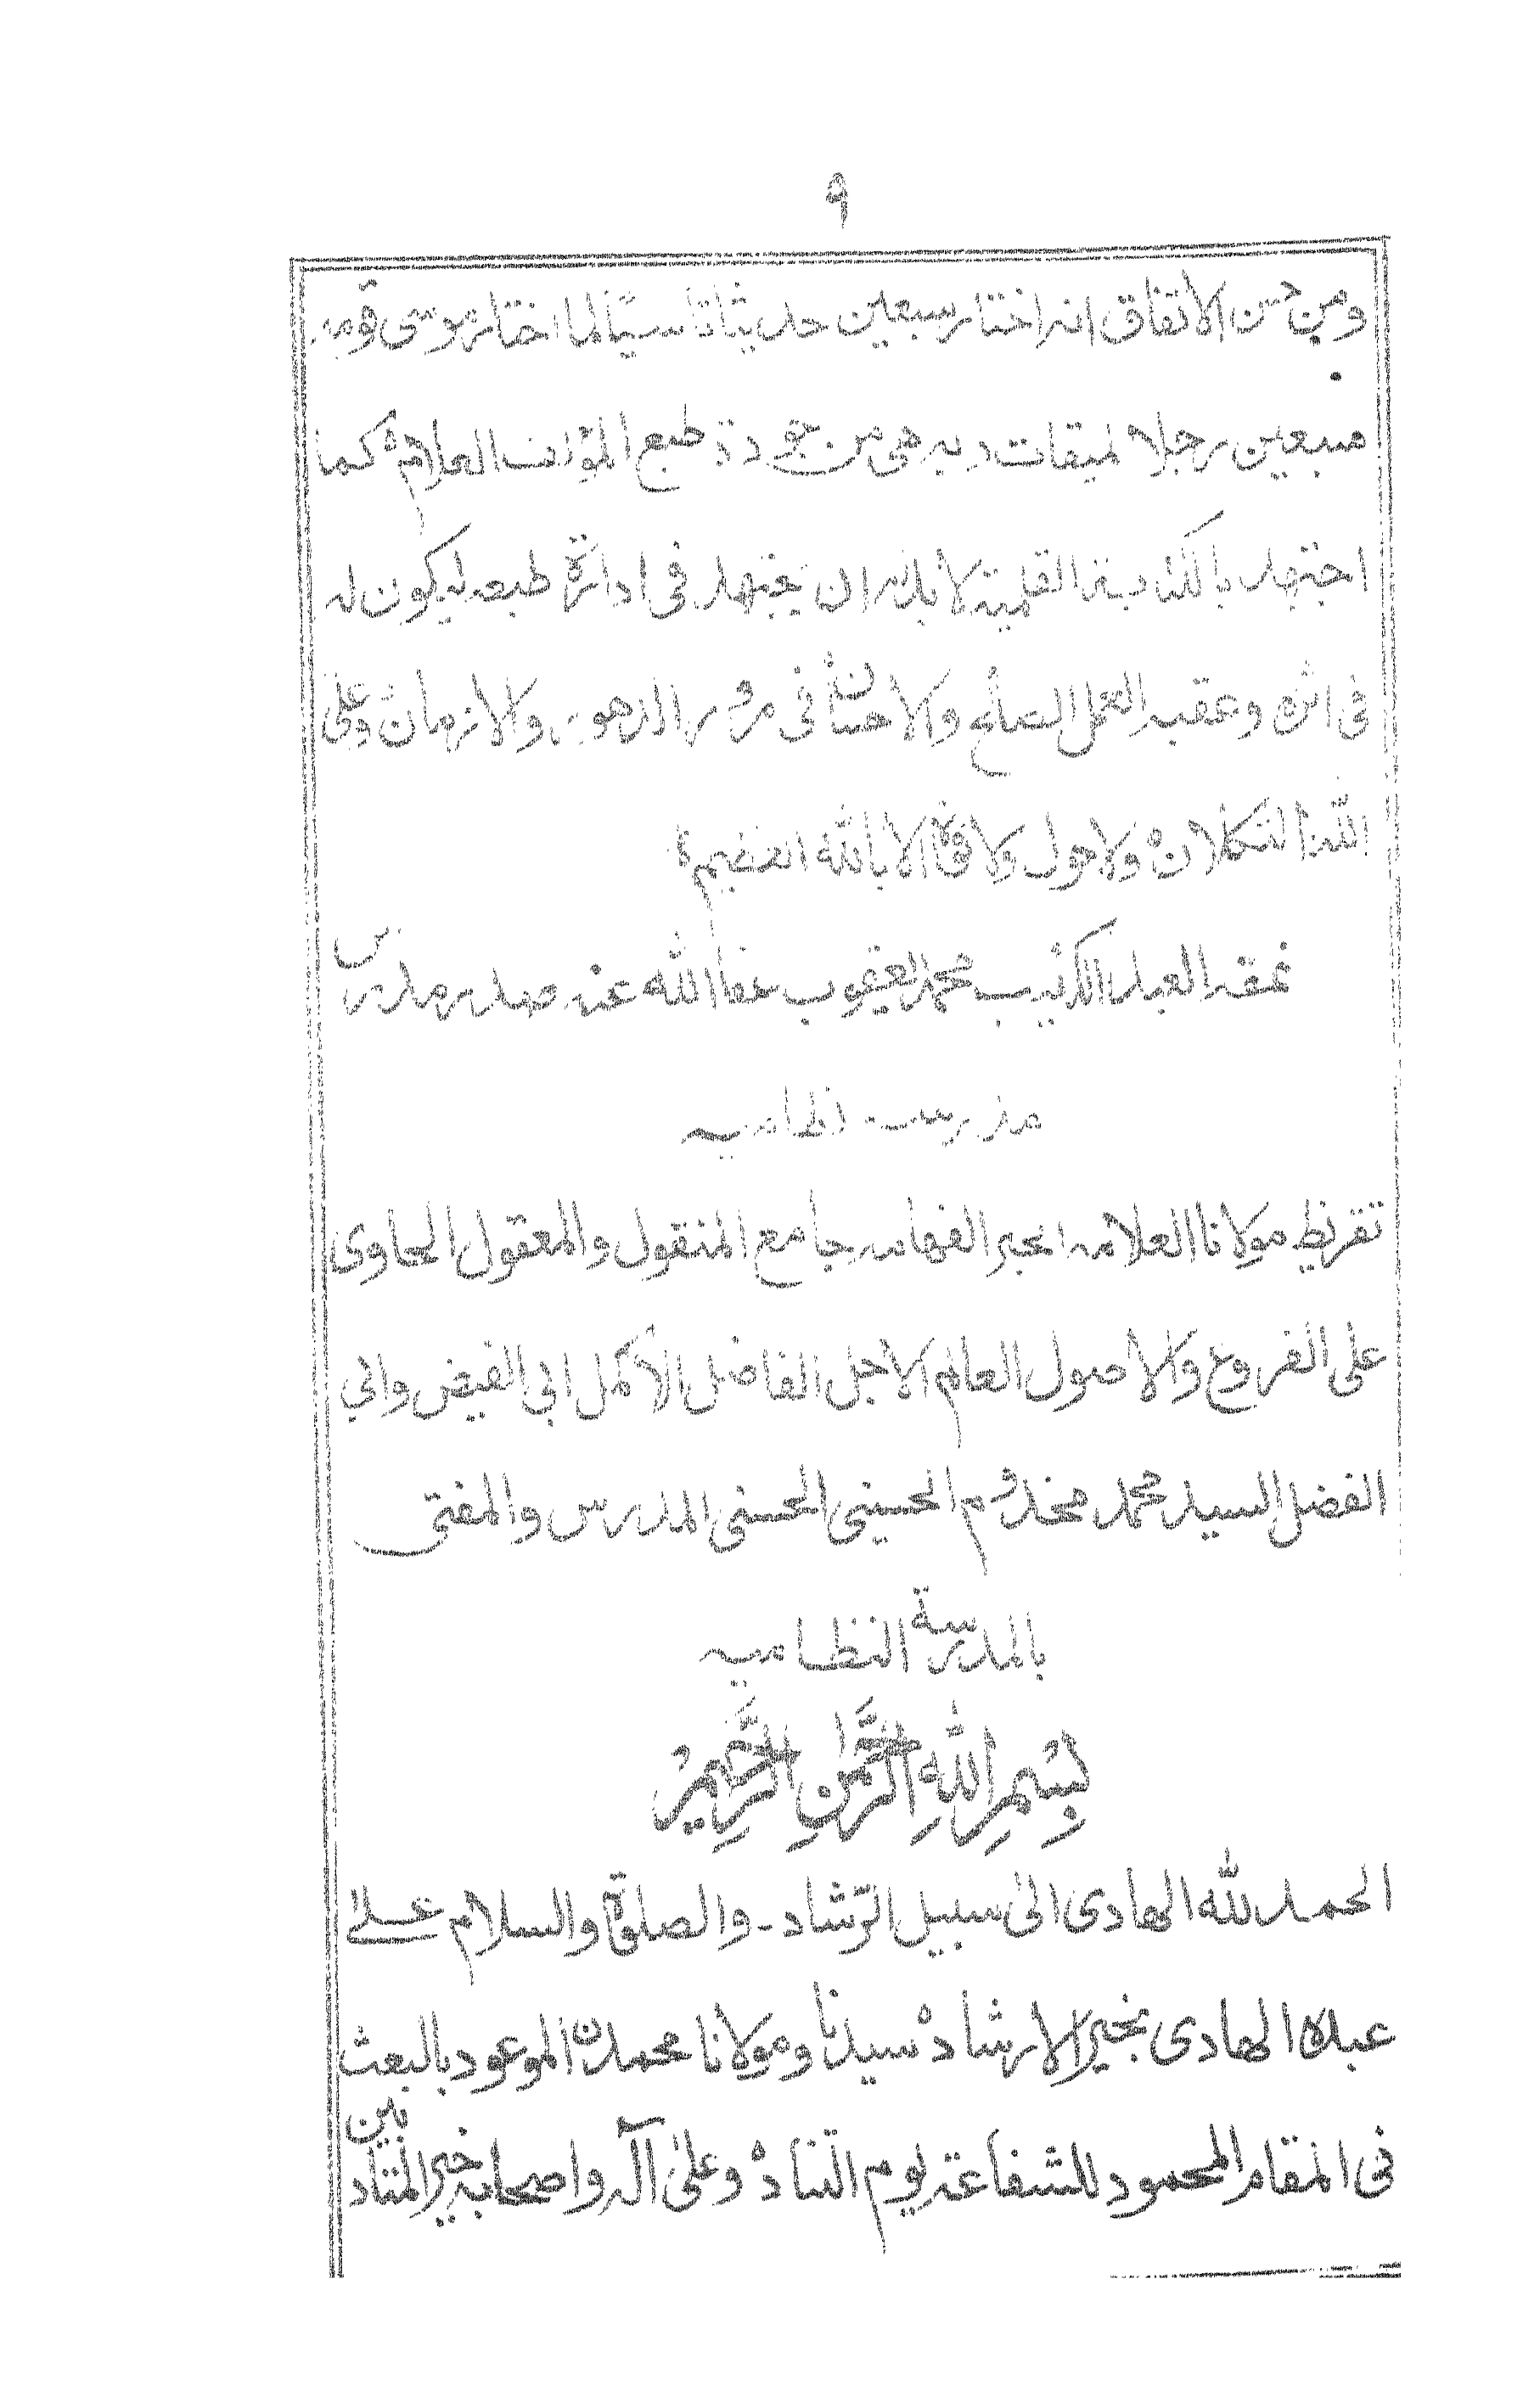 ٩
ومن حسن الاتفاق انه اختار سبعين حديثا تاسيًا لما اختار موسى قومه
سبعين رجلا لميقات ربه هى من جودة طبع المؤلف العلامة كما
اجتهد بالكتابة القلمية لا بد ان يجتهد فى ادارة طبعه ليكون له
فى اثره وعقبه العمل الصالح والاحسان فى مرور الدهور والازمان وعلى
الله التكلان ولا حول ولا قوة الا بالله العظيم
نمقه العبد الكئيب محمد يعقوب عفا الله عنه صدر مدرس
مدرسه نظاميه
تقريظ مولانا العلامه الحبر الفهامه جامع المنقول والمعقول الحاوى
على الفروع والاصول العالم الاجل الفاضل الاكمل ابى الفيض وابي
الفضل السيد محمد مخدوم الحسينى الحسنى المدرس والمفتى
بالمدرسة النظاميه
بِسْمِ اللهِ الرَّحْمٰنِ الرَّحِيْمِ
الحمد لله الهادى الى سبيل الرّشاد - والصلوة والسلام على
عبده الهادى بخير الارشاد سيدنا ومولانا محمدن الموعود بالبعث
فى المقام المحمود للشفاعة يوم التناد وعلى آله واصحابه خير المتأدبين